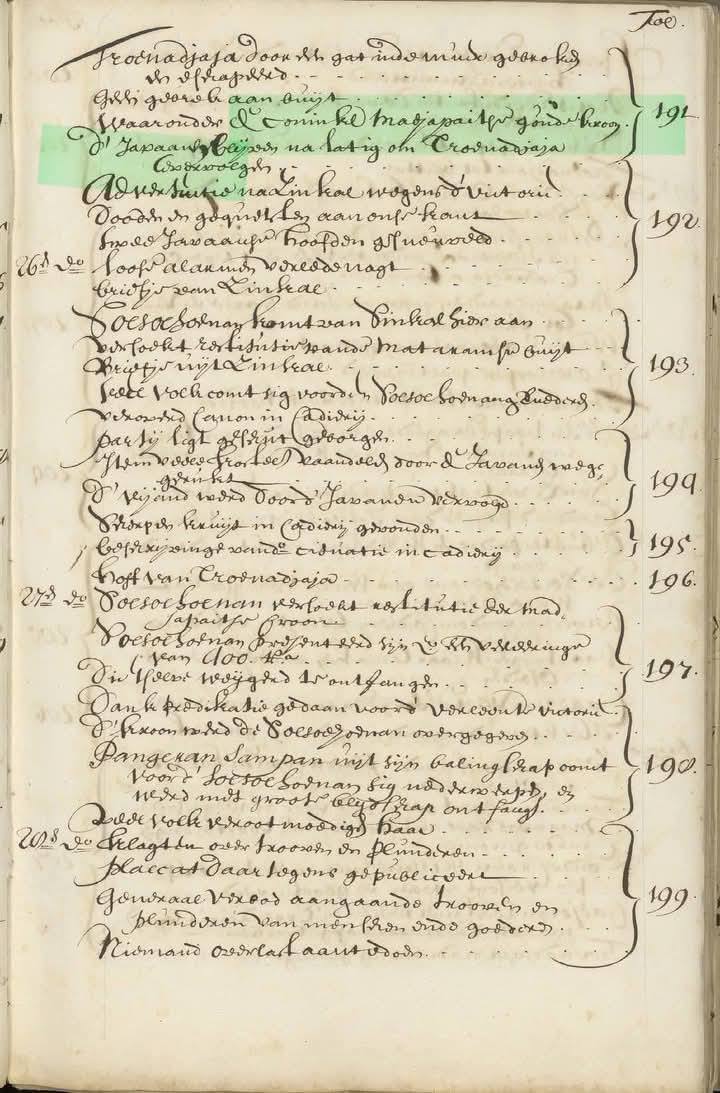 Troenadjaja door een gat inde muur gebroken
en eschapeerd
Geen gebrek aan buijt
Waaronder de Coninkl Madjapaitse goude kroon. 191
D' Javaanen na latig om Troenadjaja
te vervolgen
Advertentie na Zinkal wegens d' victorie
Dooden en gequetsten aan onse kant
twee Javaanse hoofden gesneuveld 192
26n do loose alarmen verlede nagt
briefje van Zinkal
Soesoehoenan komt van Sinkal hier aan
versoekt restitutie vande Mataramse buijt
Briefje uijt Zinkal 193
veel volk comt sig voor den Soesoehoenang
verovert Canon in Cadierij
party ligt geschut geborgen
Item veele vaandels door de Javanen weg-
gerukt 194
D' vijand werd door d' Javanen vervolgd
Scherpen kruijt in Cadierij gevonden
beschrijvinge vande situatie in Cadierij 195
Hoff van Troenadjaja 196
27n do Soesoehoenan versoekt restitutie der Mad-
japaitse Croon
Soesoehoenan presenteerd sijn een vereeringe
van 900 Rs 197
Die selve weijgerd te ontfangen
Dank predikatie gedaan voor d' verleende victorie
D' kroon werd de Soesoehoenan overgegeven
Pangeran Sampan uijt sijn balingschap comt 198
voor d' Soesoehoenan sig nederwerpen, en
werd met groote blydschap ontfangen
Veel volk verootmoedigd haar
28n do klagten over rooven en plunderen
placcat daar tegens gepubliceert
Generaal verbod aangaande rooven en 199
plunderen van menschen ende goederen
Niemand overlast aan te doen